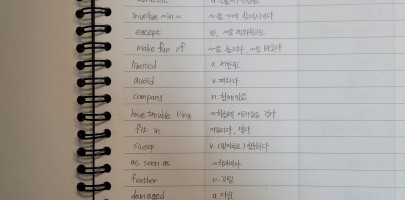 involve ~in~ ~을 ~에 참여시키다
except
make fun of ~을 놀리다, ~을 비웃다
limited a. 제한된
avoid v. 피하다
company n.
have trouble ~ing ~하는데 어려움을 겪다
fit in 어울리다, 맞다
sweep v. 청소하다
as soon as ~하자마자
feather n. 깃털
damaged a.